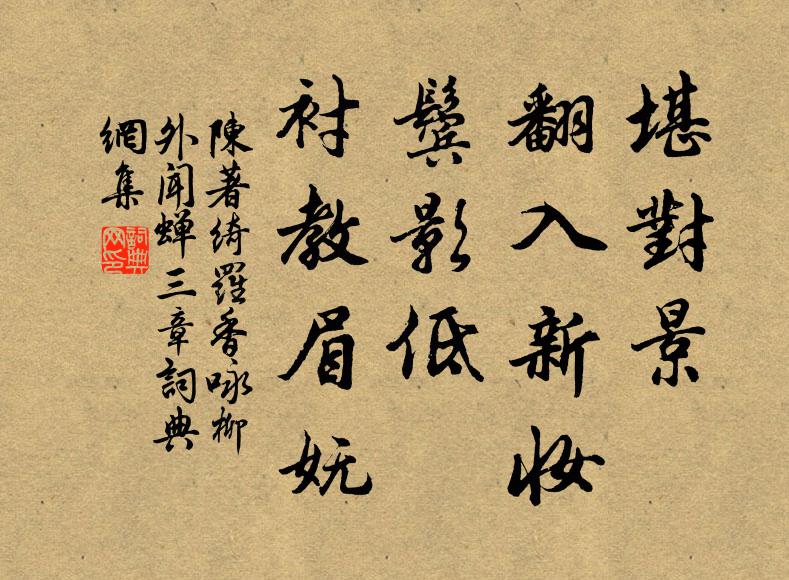 堪對景
翻入新妝
鬢影低
襯教眉妩
陳著綺羅香咏柳
外聞蟬三章詞典
網集
詞典
網印